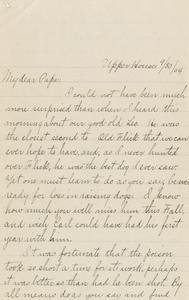 Upper House 9/30/04
My dear Papa:
I could not have been much
more surprised than when I heard this
morning about our good old Leo. He was
the closest second to Old Flick that we can
ever hope to have, and, as I never hunted
over Flick, he was the best dog I ever saw.
Yet one must learn to do as you say, be
ready for loss in raising dogs. I know
how much you will miss him this Fall,
and wish Carl could have had his first
year with him.
It was fortunate that the poison
took so short a time for its work, perhaps
it was better so than had he been shot. By
all means do as you say and find